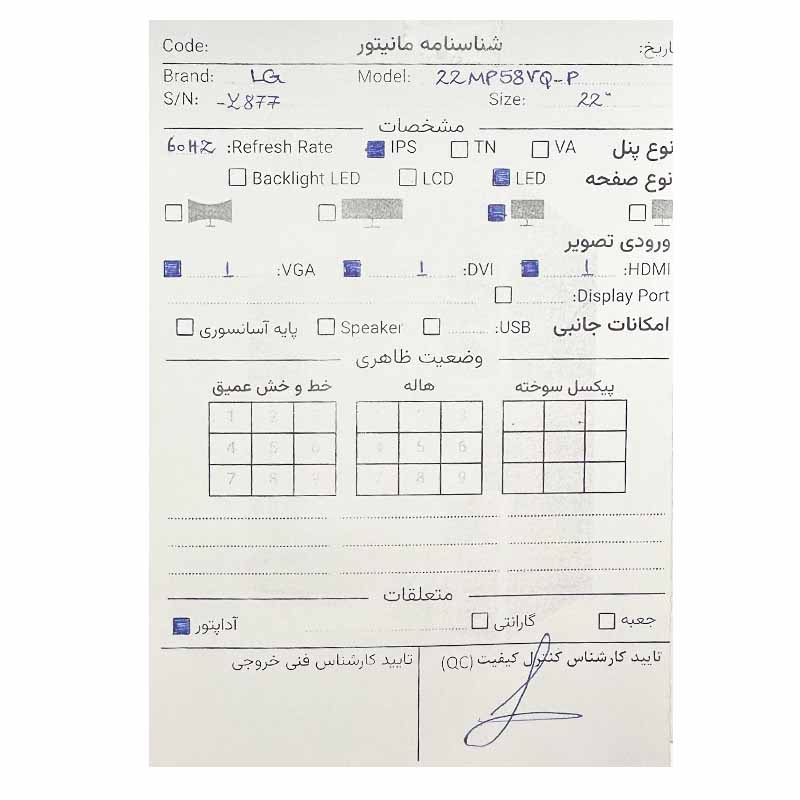 Code: شناسنامه مانیتور اریخ:
Brand: LG Model: 22MP58VQ-P
S/N: -2877 Size: 22"
مشخصات
نوع پنل VA TN IPS Refresh Rate: 60HZ
نوع صفحه LED LCD Backlight LED
ورودی تصویر
HDMI: 1 DVI: 1 VGA: 1
Display Port:
امکانات جانبی USB: Speaker پایه آسانسوری
وضعیت ظاهری
پیکسل سوخته هاله خط و خش عمیق
3 1 2
4 5 6 4 5 6
7 8 9 7 8 9
متعلقات
جعبه گارانتی آداپتور
تایید کارشناس کنترل کیفیت (QC) تایید کارشناس فنی خروجی